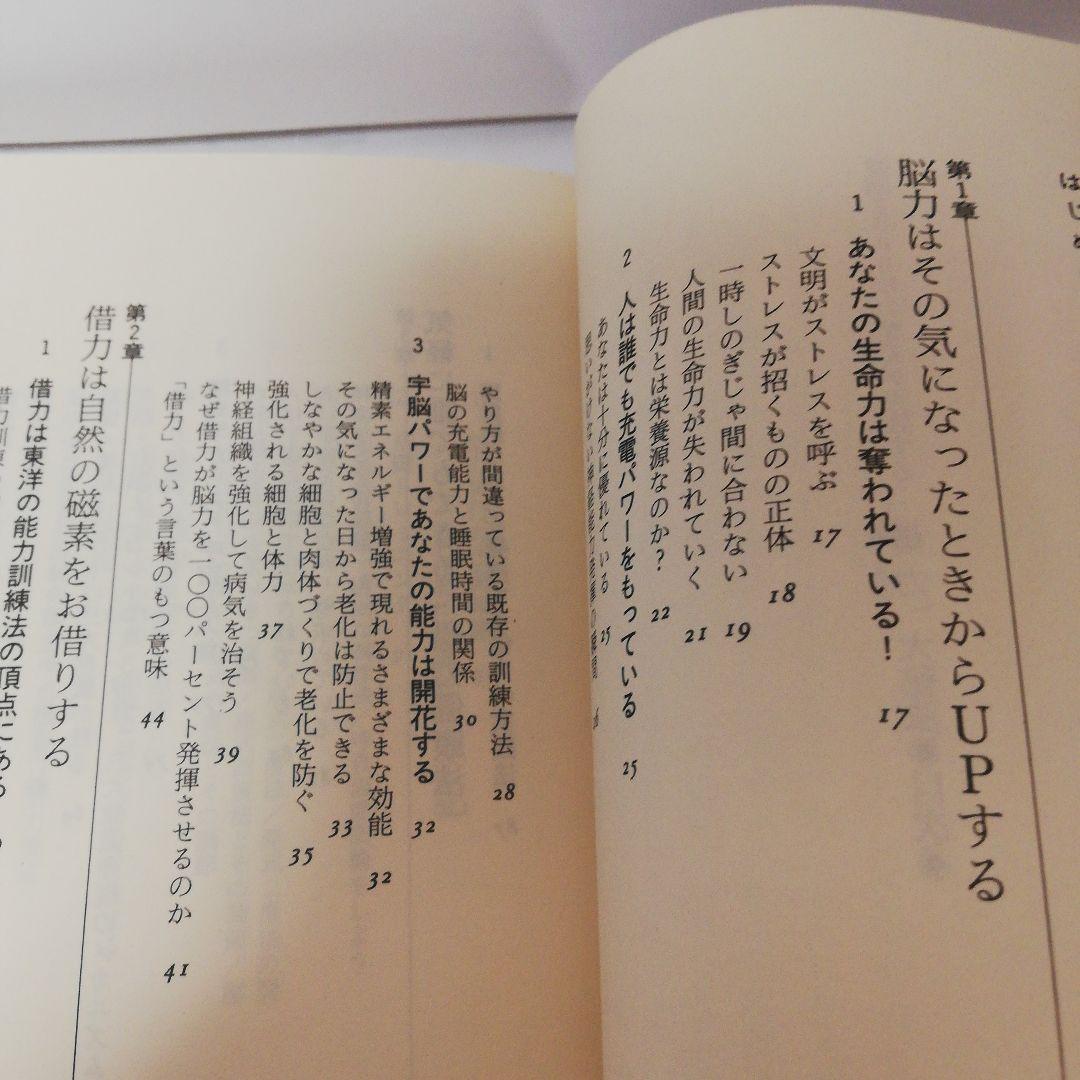 はじ
第1章
脳力はその気になったときからUPする
1 あなたの生命力は奪われている! 17
文明がストレスを呼ぶ 17
ストレスが招くものの正体 18
一時しのぎじゃ間に合わない 19
人間の生命力が失われていく 21
生命力とは栄養源なのか? 22
2 人は誰でも充電パワーをもっている 25
あなたは十分に優れている 25
思いがけない 26
やり方が間違っている既存の訓練方法 28
脳の充電能力と睡眠時間の関係 30
3 宇脳パワーであなたの能力は開花する 32
精素エネルギー増強で現れるさまざまな効能 32
その気になった日から老化は防止できる 33
しなやかな細胞と肉体づくりで老化を防ぐ 35
強化される細胞と体力 37
神経組織を強化して病気を治そう 39
なぜ借力が脳力を一〇〇パーセント発揮させるのか 41
「借力」という言葉のもつ意味 44
第2章
借力は自然の磁素をお借りする
1 借力は東洋の能力訓練法の頂点にある
借力訓練